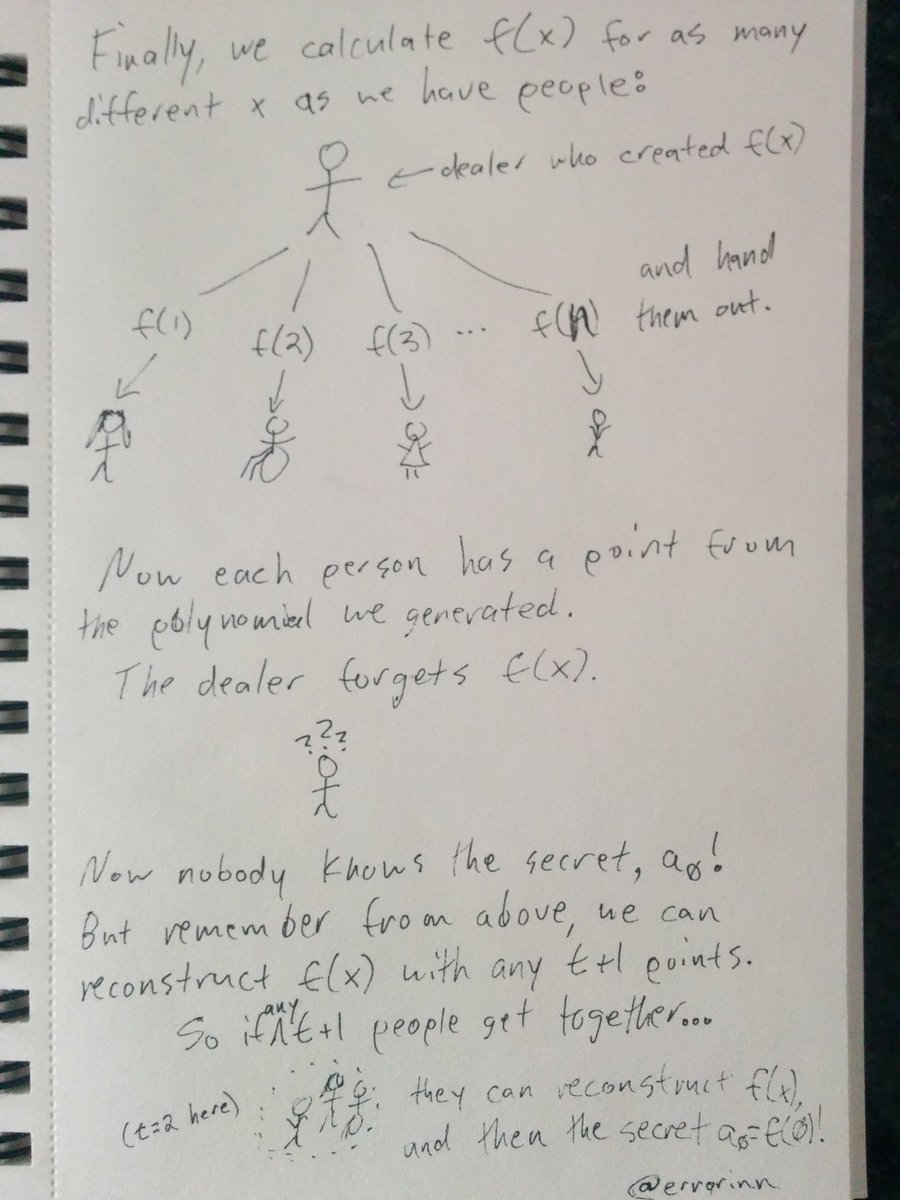 Finally, we calculate f(x) for as many
different x as we have people:
← dealer who created f(x)
and hand
them out.
f(1) f(2) f(3) ... f(n)
Now each person has a point from
the polynomial we generated.
The dealer forgets f(x).
? ? ?
Now nobody knows the secret, a₀!
But remember from above, we can
reconstruct f(x) with any t+1 points.
So if any t+1 people get together...
(t=2 here)
they can reconstruct f(x),
and then the secret a₀=f(0)!
@errorinn